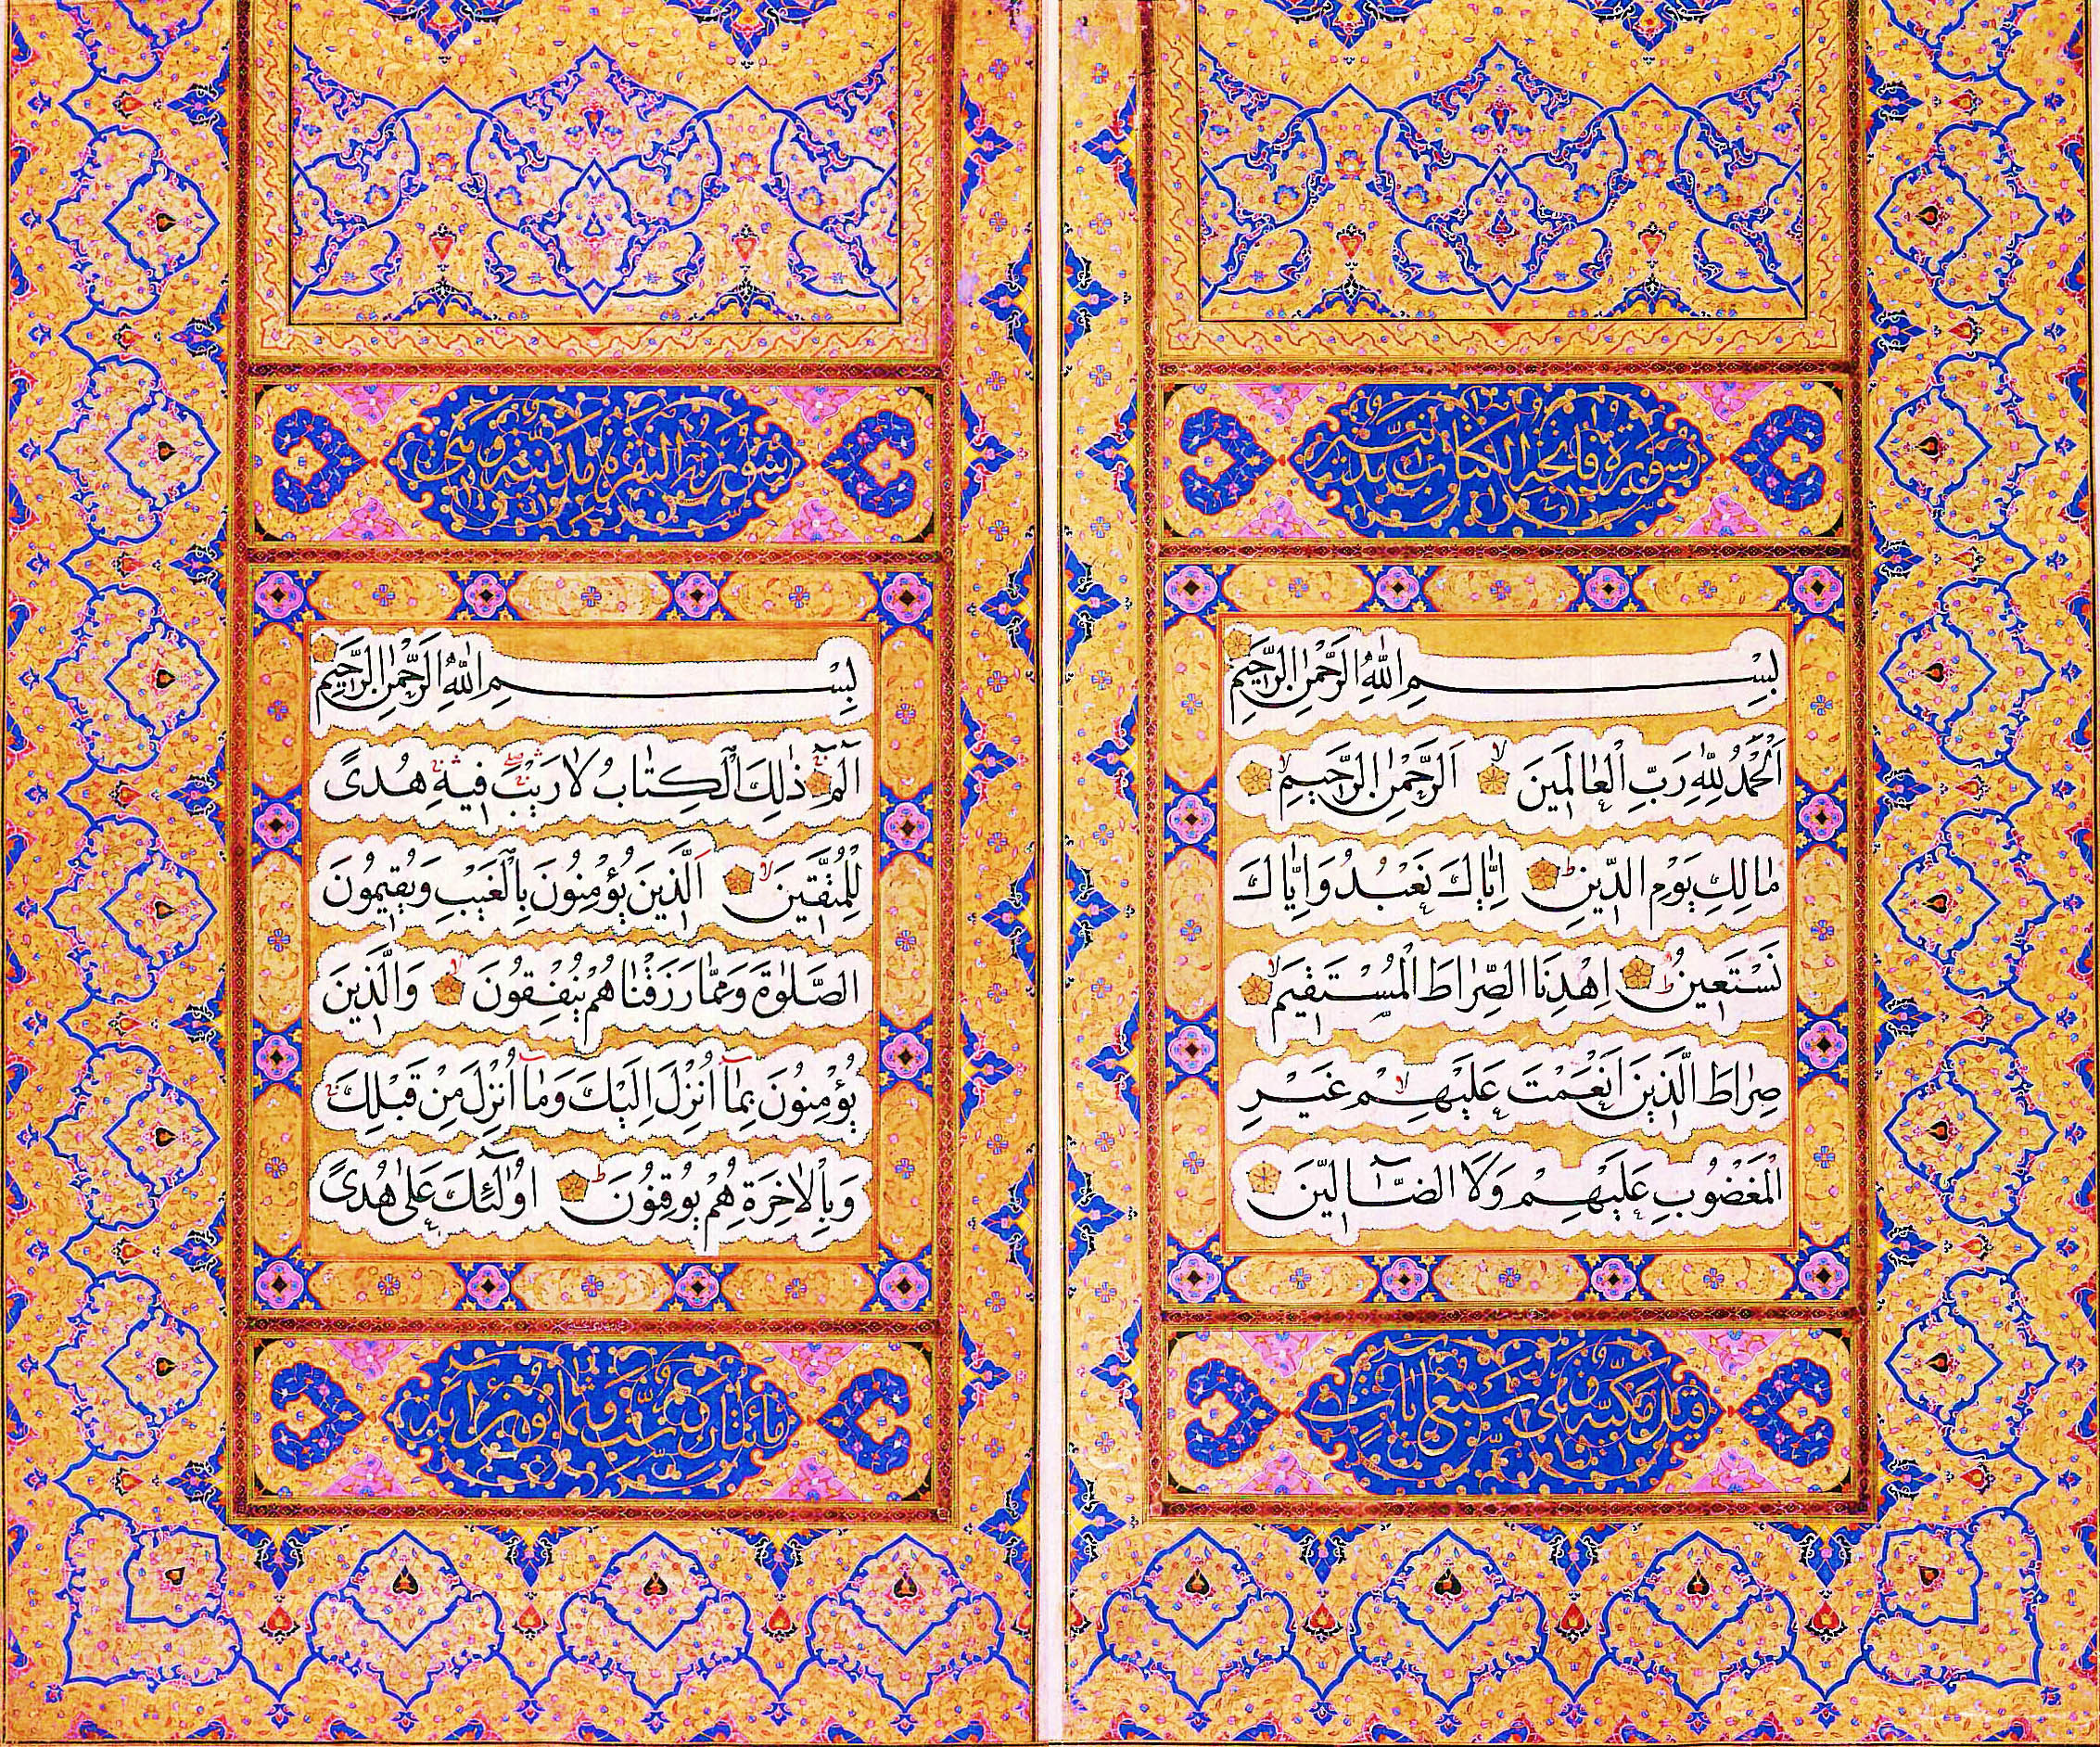 سورة فاتحة الكتاب مدنية
بِسْمِ اللّٰهِ الرَّحْمٰنِ الرَّحِيمِ
اَلْحَمْدُ لِلّٰهِ رَبِّ الْعَالَمِينَ ۙ اَلرَّحْمٰنِ الرَّحِيمِ ۙ
مَالِكِ يَوْمِ الدِّينِ ؕ اِيَّاكَ نَعْبُدُ وَاِيَّاكَ
نَسْتَعِينُ ؕ اِهْدِنَا الصِّرَاطَ الْمُسْتَقِيمَ ۙ
صِرَاطَ الَّذِينَ اَنْعَمْتَ عَلَيْهِمْ ۙ غَيْرِ
الْمَغْضُوبِ عَلَيْهِمْ وَلَا الضَّآلِّينَ
وقيل مكية وهي سبع آيات
سورة البقرة مدنية وهي
بِسْمِ اللّٰهِ الرَّحْمٰنِ الرَّحِيمِ
الٓمٓ ذٰلِكَ الْكِتَابُ لَا رَيْبَ فِيهِ هُدًى
لِلْمُتَّقِينَ ۙ اَلَّذِينَ يُؤْمِنُونَ بِالْغَيْبِ وَيُقِيمُونَ
الصَّلٰوةَ وَمِمَّا رَزَقْنَاهُمْ يُنْفِقُونَ ۙ وَالَّذِينَ
يُؤْمِنُونَ بِمَآ اُنْزِلَ اِلَيْكَ وَمَآ اُنْزِلَ مِنْ قَبْلِكَ
وَبِالْاٰخِرَةِ هُمْ يُوقِنُونَ ؕ اُولٰٓئِكَ عَلٰى هُدًى
مائتان وست وثمانون آية